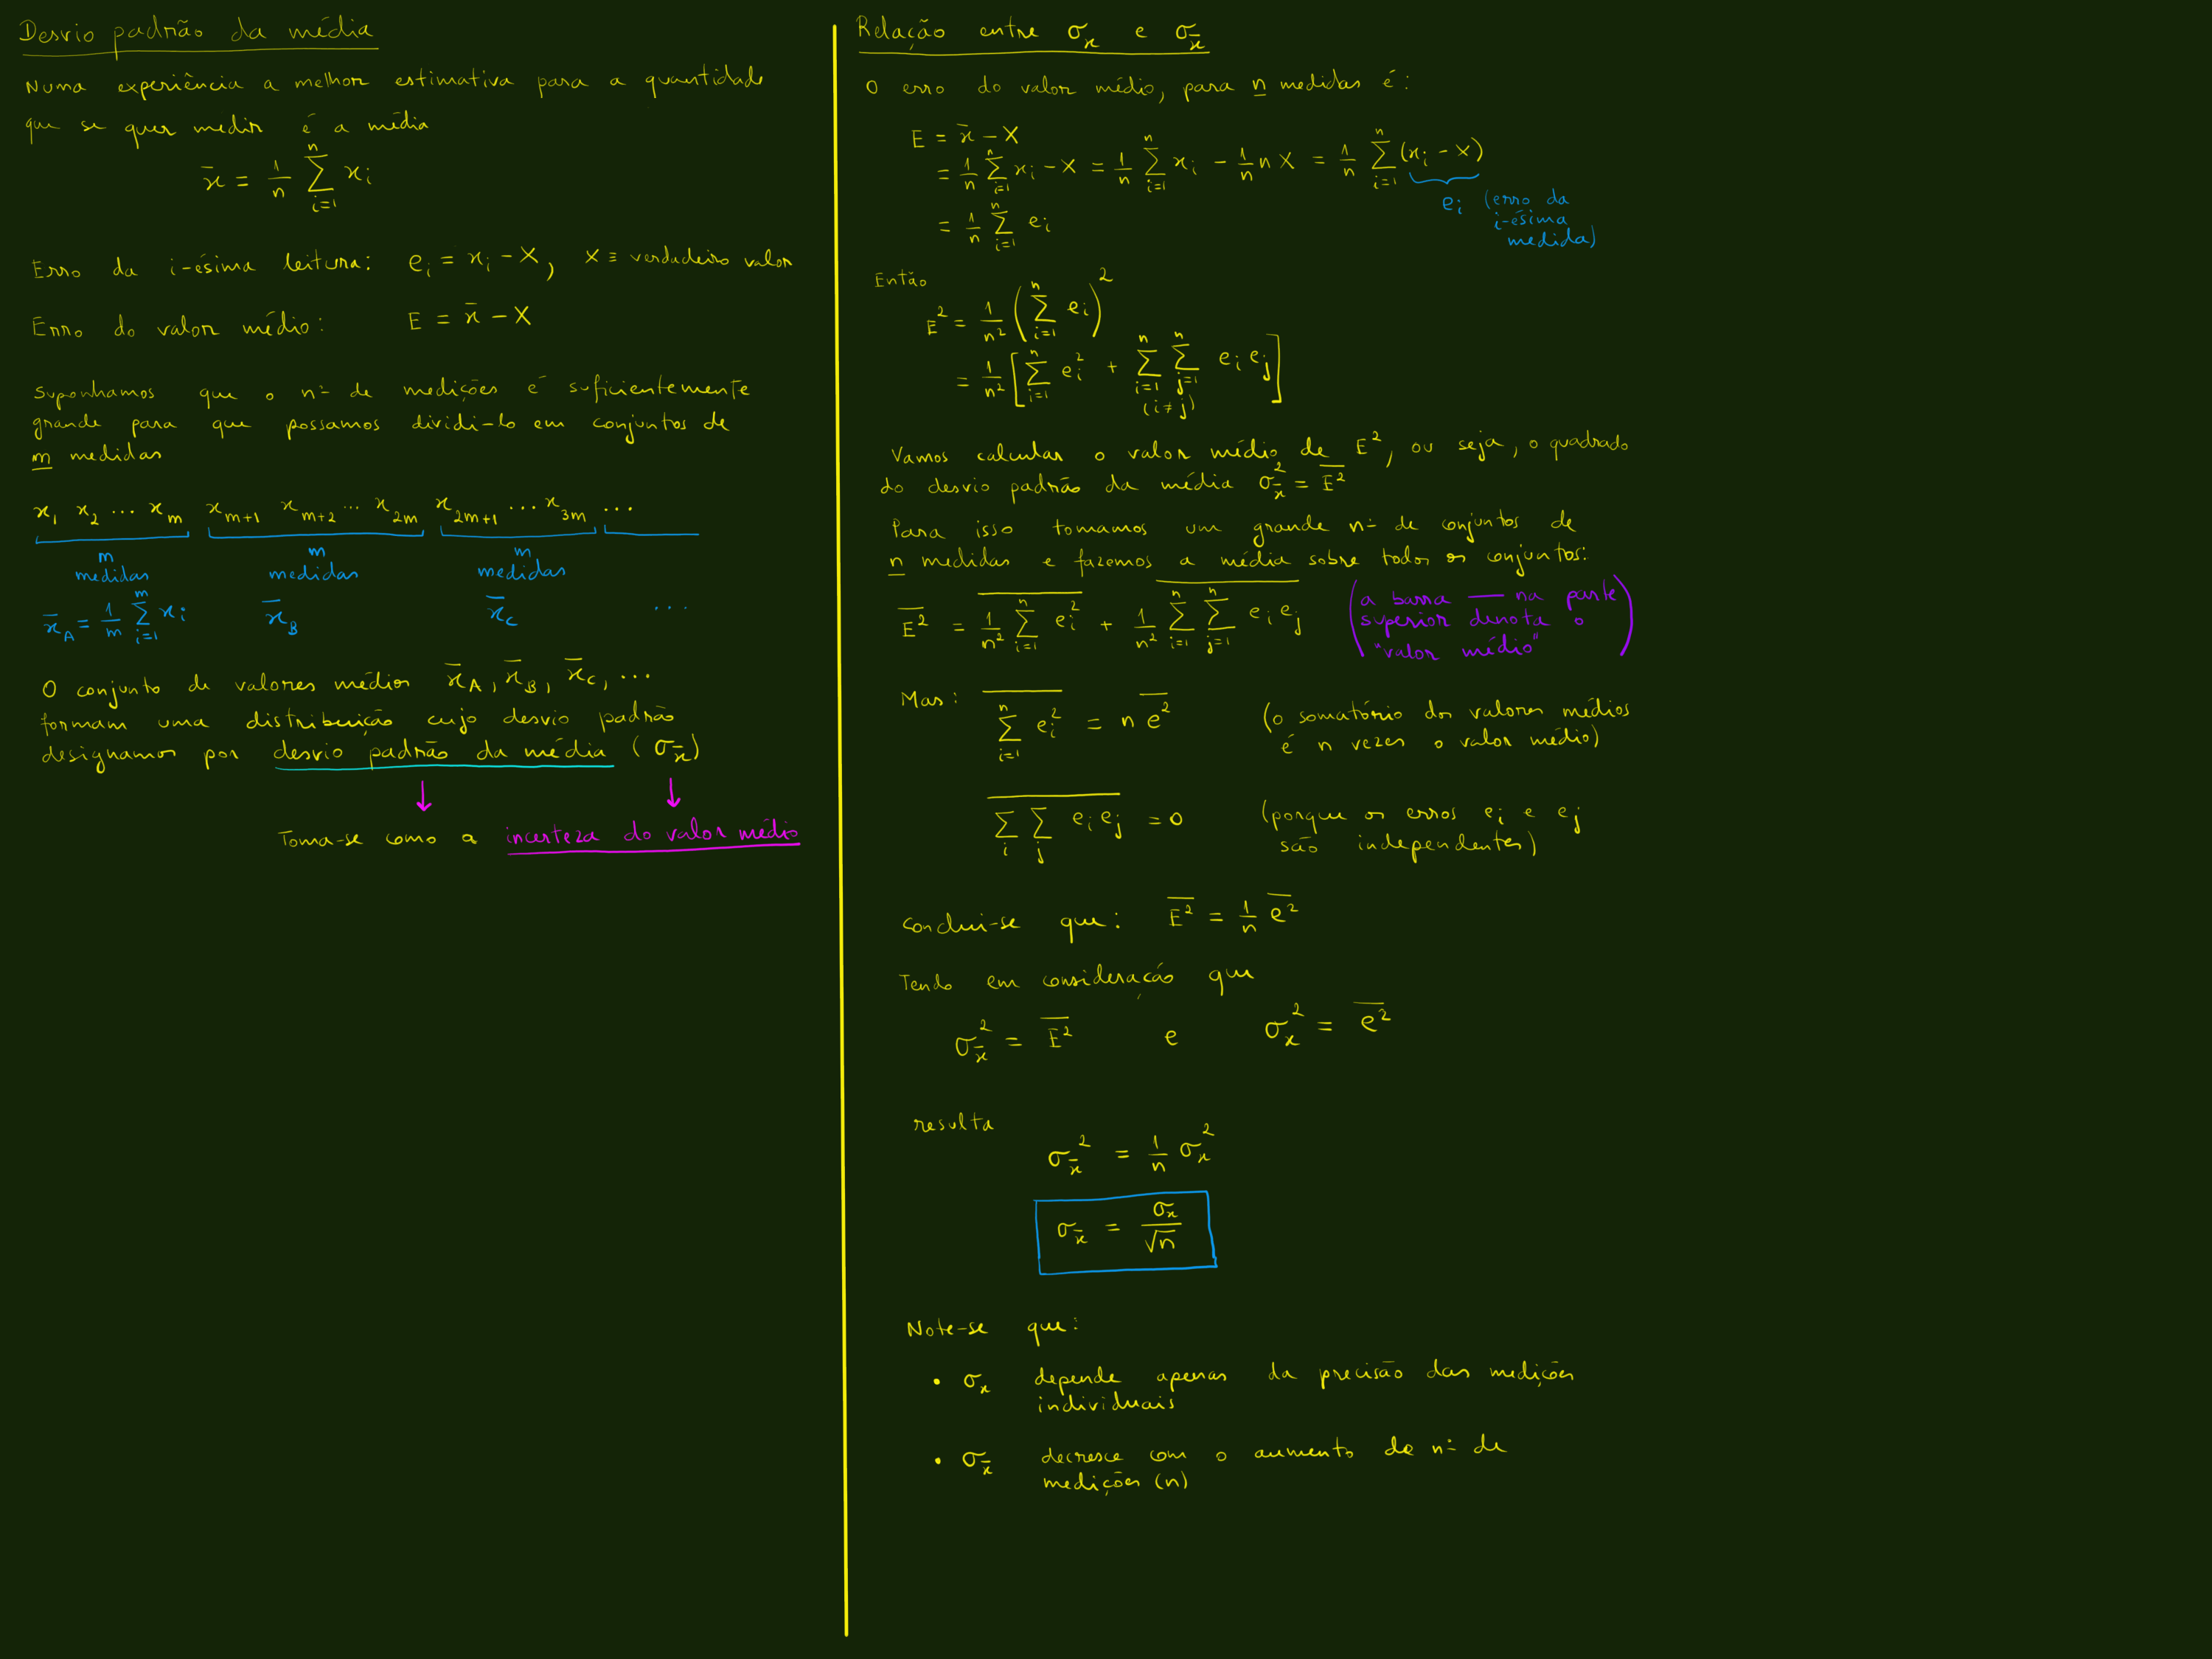 Desvio padrão da média
Numa experiência a melhor estimativa para a quantidade
que se quer medir é a média
x̄ = 1/n ∑_{i=1}^{n} x_i
Erro da i-ésima leitura: e_i = x_i - X, X ≡ verdadeiro valor
Erro do valor médio: E = x̄ - X
Suponhamos que o nº de medições é suficientemente
grande para que possamos dividi-lo em conjuntos de
m medidas
x_1 x_2 ... x_m x_{m+1} x_{m+2} ... x_{2m} x_{2m+1} ... x_{3m} ...
m m m
medidas medidas medidas
x̄_A = 1/m ∑_{i=1}^{m} x_i x̄_B x̄_C ...
O conjunto de valores médios x̄_A, x̄_B, x̄_C, ...
formam uma distribuição cujo desvio padrão
designamos por desvio padrão da média (σ_x̄)
↓ ↓
Toma-se como a incerteza do valor médio
Relação entre σ_x e σ_x̄
O erro do valor médio, para n medidas é:
E = x̄ - X
= 1/n ∑_{i=1}^{n} x_i - X = 1/n ∑_{i=1}^{n} x_i - 1/n n X = 1/n ∑_{i=1}^{n} (x_i - X)
e_i (erro da
i-ésima
medida)
= 1/n ∑_{i=1}^{n} e_i
Então
E² = 1/n² (∑_{i=1}^{n} e_i)²
= 1/n² [∑_{i=1}^{n} e_i² + ∑_{i=1}^{n} ∑_{j=1}^{n} e_i e_j]
(i ≠ j)
Vamos calcular o valor médio de E², ou seja, o quadrado
do desvio padrão da média σ_x̄² = \overline{E²}
Para isso tomamos um grande nº de conjuntos de
n medidas e fazemos a média sobre todos os conjuntos:
\overline{E²} = \overline{1/n² ∑_{i=1}^{n} e_i²} + \overline{1/n² ∑_{i=1}^{n} ∑_{j=1}^{n} e_i e_j}
(a barra — na parte
superior denota o
"valor médio")
Mas: \overline{∑_{i=1}^{n} e_i²} = n \overline{e²} (o somatório dos valores médios
é n vezes o valor médio)
\overline{∑_i ∑_j e_i e_j} = 0 (porque os erros e_i e e_j
são independentes)
Conclui-se que: \overline{E²} = 1/n \overline{e²}
Tendo em consideração que
σ_x̄² = \overline{E²} e σ_x² = \overline{e²}
resulta
σ_x̄² = 1/n σ_x²
σ_x̄ = σ_x/√n
Note-se que:
• σ_x depende apenas da precisão das medições
individuais
• σ_x̄ decresce com o aumento do nº de
medições (n)